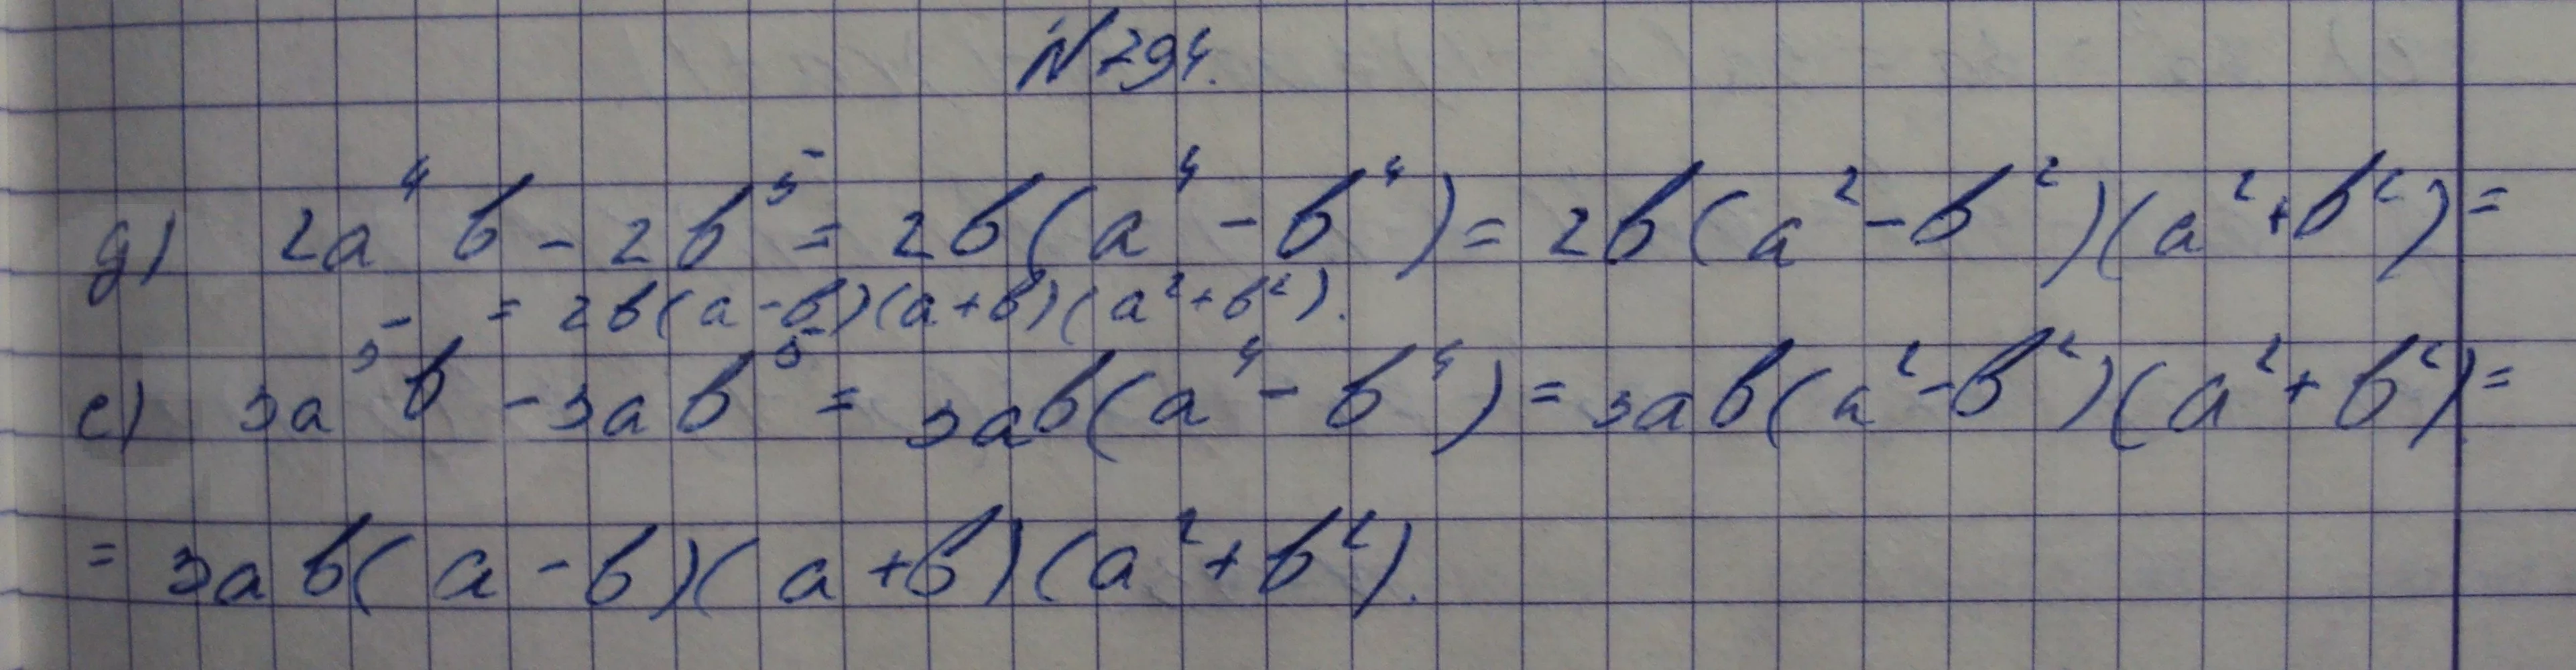 №294.
д) 2a⁴b - 2b⁵ = 2b(a⁴ - b⁴) = 2b(a² - b²)(a² + b²) =
= 2b(a - b)(a + b)(a² + b²).
е) 3a⁵b - 3ab⁵ = 3ab(a⁴ - b⁴) = 3ab(a² - b²)(a² + b²) =
= 3ab(a - b)(a + b)(a² + b²).